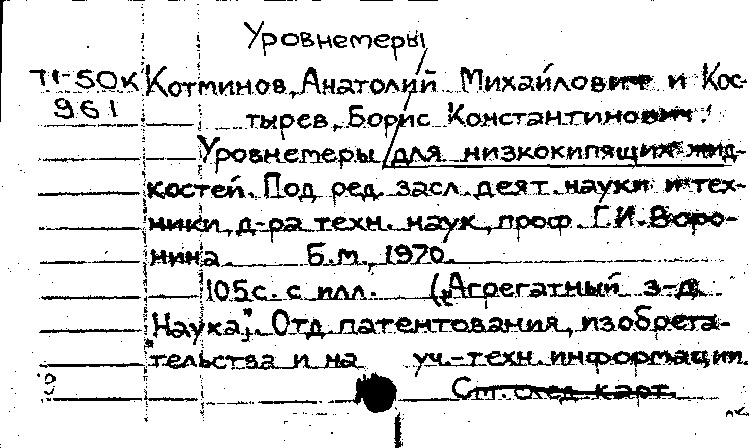 Уровнемеры
71-50к Котминов, Анатолий Михайлович и Кос-
961 тырев, Борис Константинович.
Уровнемеры для низкокипящих жид-
костей. Под ред. засл. деят. науки и тех-
ники, д-ра техн. наук, проф. Г.И. Воро-
нина. Б.м., 1970.
105с. с илл. (Агрегатный з-д
"Наука". Отд. патентования, изобрета-
тельства и на уч.-техн. информации.
См. след. карт.